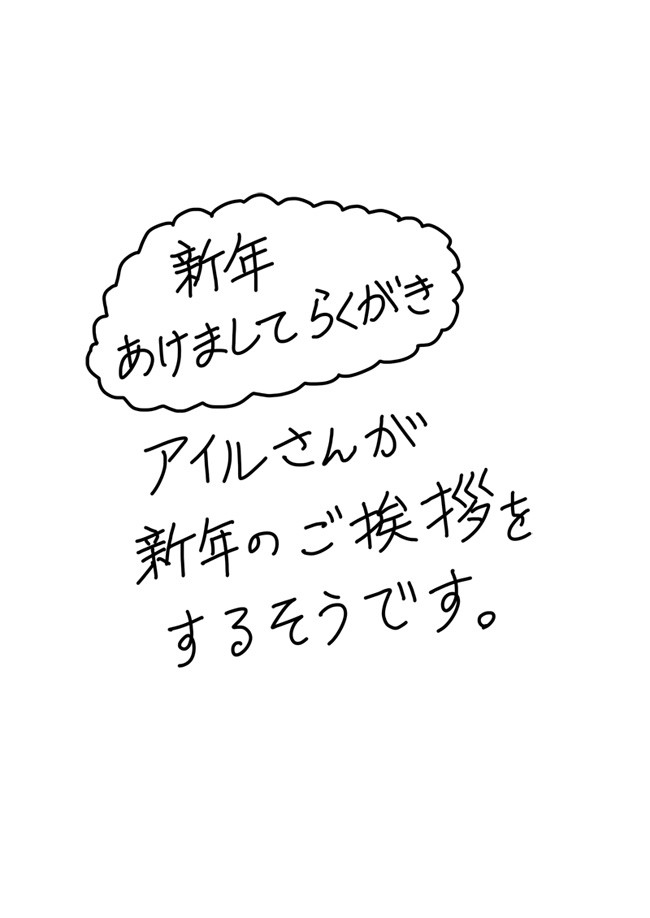 新年
あけましてらくがき
アイルさんが
新年のご挨拶を
するそうです。